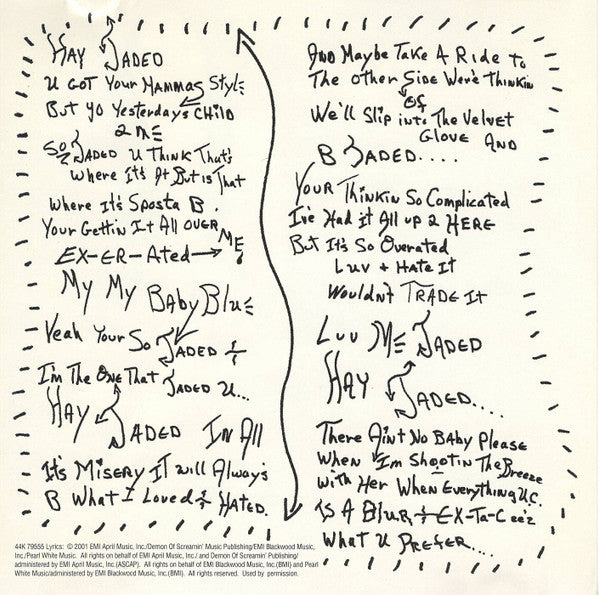 HAY JADED
U GOT YOUR MAMMAS STYLE
BUT YO YESTERDAYS CHILD
2 ME
SO JADED U THINK THAT'S
WHERE IT'S AT BUT IS THAT
WHERE IT'S SPOSTA B.
YOUR GETTIN IT ALL OVER ME
EX-ER-ATED →
MY MY BABY BLUE
YEAH YOUR SO JADED &
I'M THE ONE THAT JADED U...
HAY JADED IN ALL
IT'S MISERY IT WILL ALWAYS
B WHAT I LOVED & HATED.
AND MAYBE TAKE A RIDE TO
THE OTHER SIDE WERE THINKIN
OF
WE'LL SLIP INTO THE VELVET
GLOVE AND
B JADED....
YOUR THINKIN SO COMPLICATED
I'VE HAD IT ALL UP 2 HERE
BUT IT'S SO OVERATED
LUV + HATE IT
WOULDN'T TRADE IT
LUV ME JADED
HAY JADED....
THERE AIN'T NO BABY PLEASE
WHEN I'M SHOOTIN THE BREEZE
WITH HER WHEN EVERYTHING U.C.
IS A BLUR & EX-TA-CEE'Z
WHAT U PREFER...
44K 79555 Lyrics: © 2001 EMI April Music, Inc./Demon Of Screamin' Music Publishing/EMI Blackwood Music,
Inc./Pearl White Music. All rights on behalf of EMI April Music, Inc./ and Demon Of Screamin' Publishing/
administered by EMI April Music, Inc.(ASCAP). All rights on behalf of EMI Blackwood Music, Inc.(BMI) and Pearl
White Music/administered by EMI Blackwood Music, Inc.(BMI). All rights reserved. Used by permission.